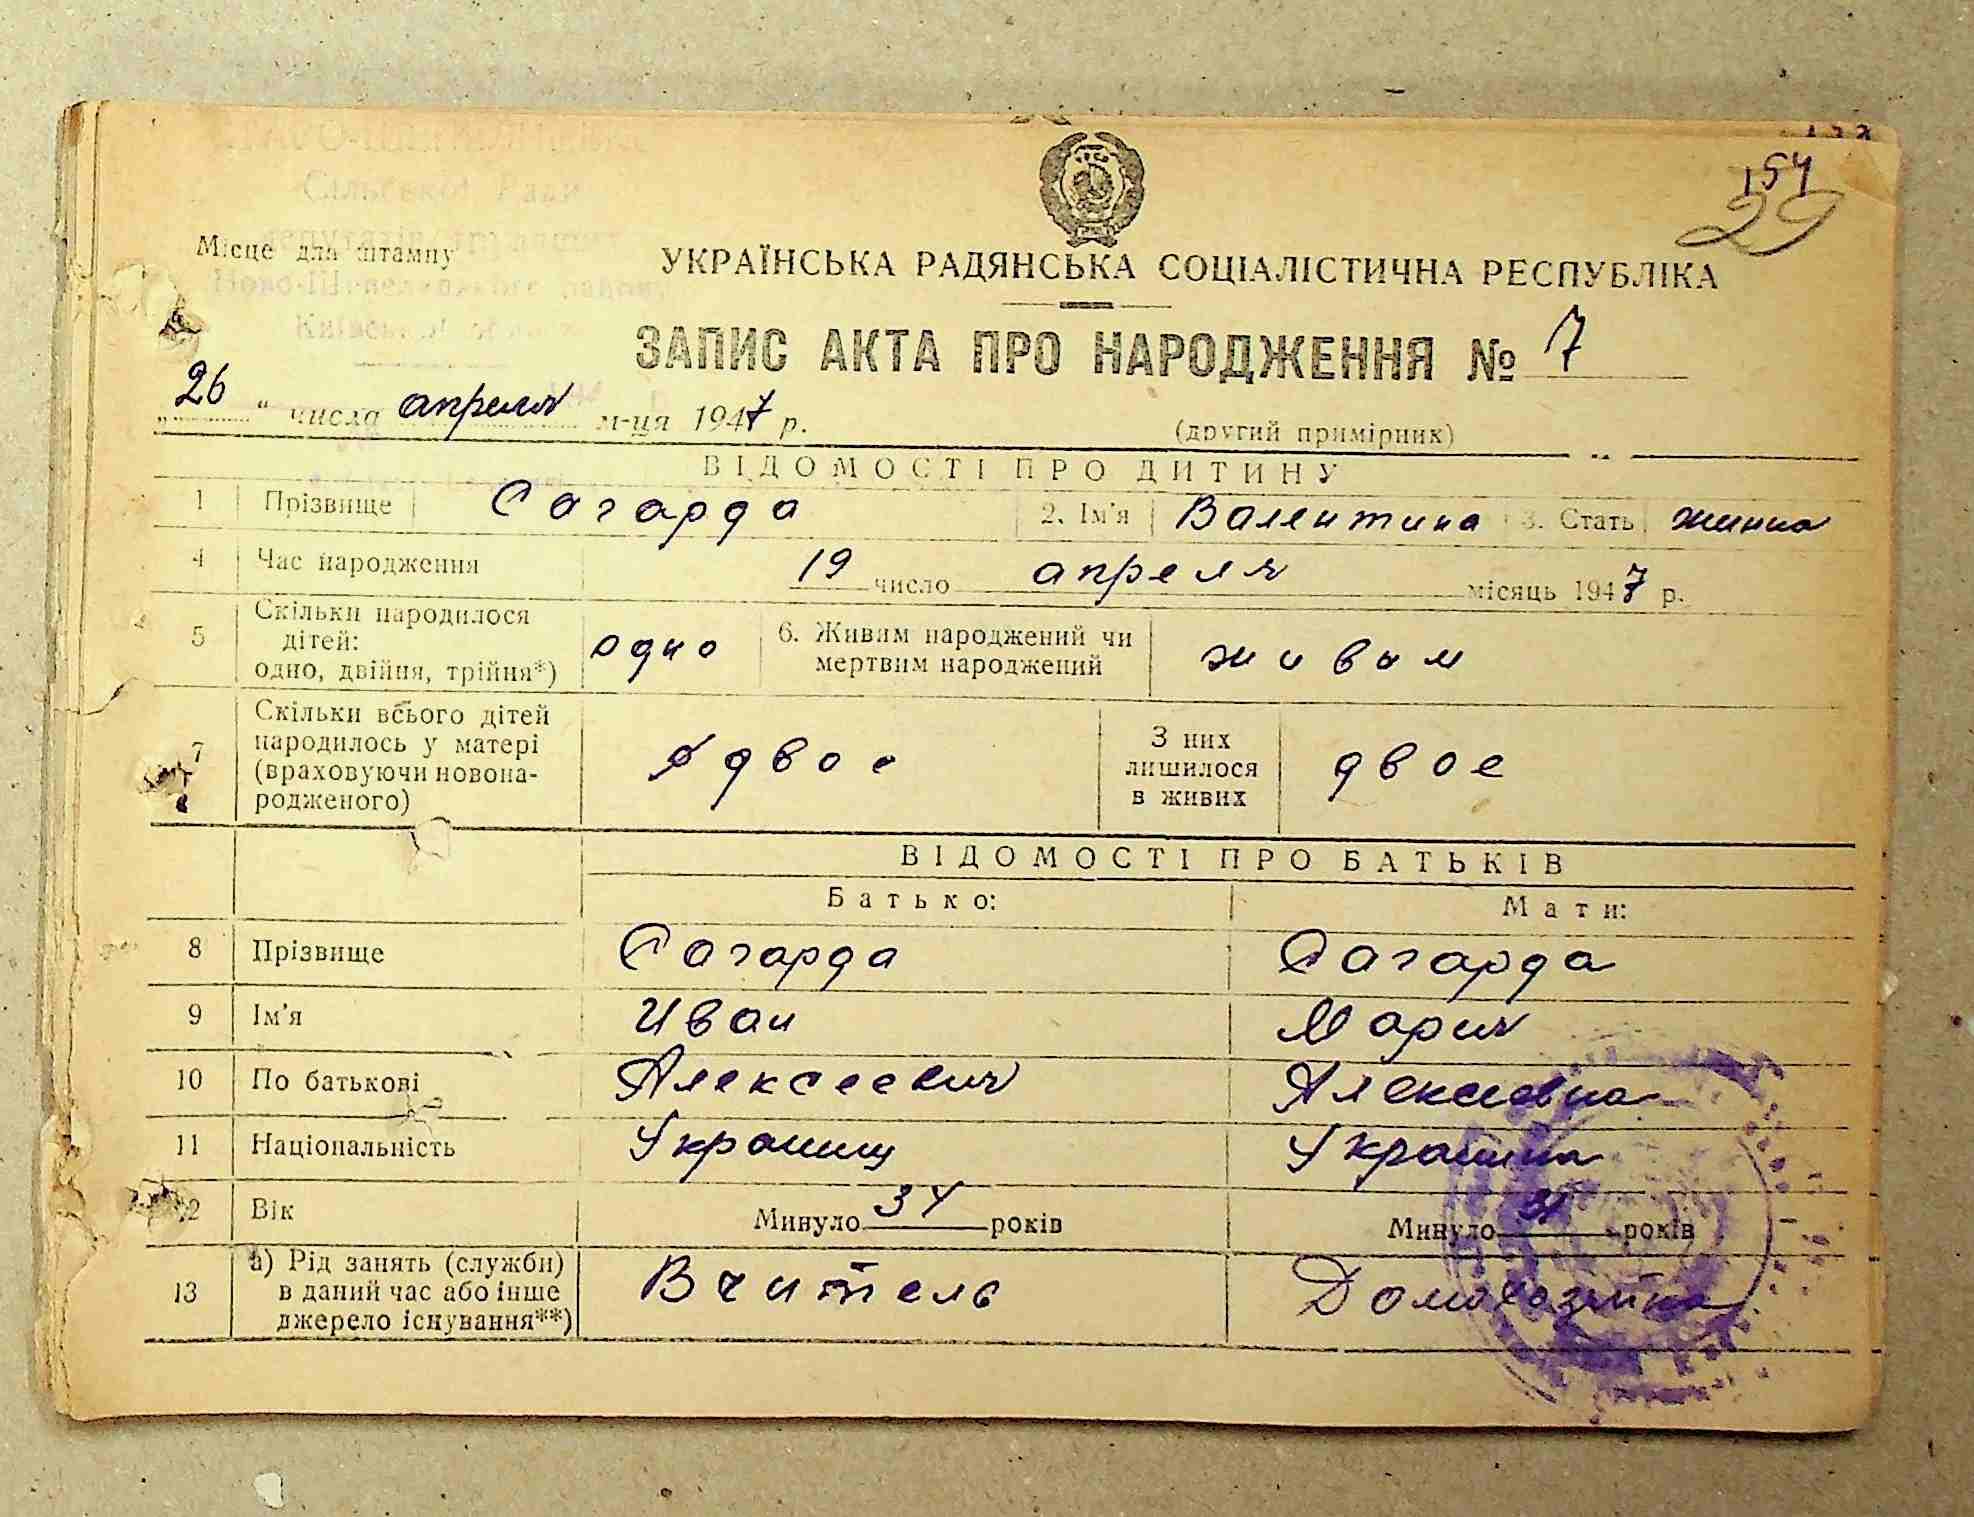 154
29
Сільської Ради
Місце для штампу
УКРАЇНСЬКА РАДЯНСЬКА СОЦІАЛІСТИЧНА РЕСПУБЛІКА
ЗАПИС АКТА ПРО НАРОДЖЕННЯ № 7
„ 26 “ числа апреля м-ця 1947 р.
(другий примірник)
ВІДОМОСТІ ПРО ДИТИНУ
1 Прізвище Сагарда 2. Ім'я Валентина 3. Стать
4 Час народження 19 число апреля місяць 1947 р.
5 Скільки народилося
дітей:
одно, двійня, трійня*) одно 6. Живим народжений чи
мертвим народжений живым
7 Скільки всього дітей
народилось у матері
(враховуючи новона-
родженого) двое З них
лишилося
в живих двое
ВІДОМОСТІ ПРО БАТЬКІВ
Батько: Мати:
8 Прізвище Сагарда Сагарда
9 Ім'я Иван Мария
10 По батькові Алексеевич Алексеевна
11 Національність Украинц Украинка
12 Вік Минуло 34 років Минуло років
13 а) Рід занять (служби)
в даний час або інше
джерело існування**) Вчитель Домохазяйка